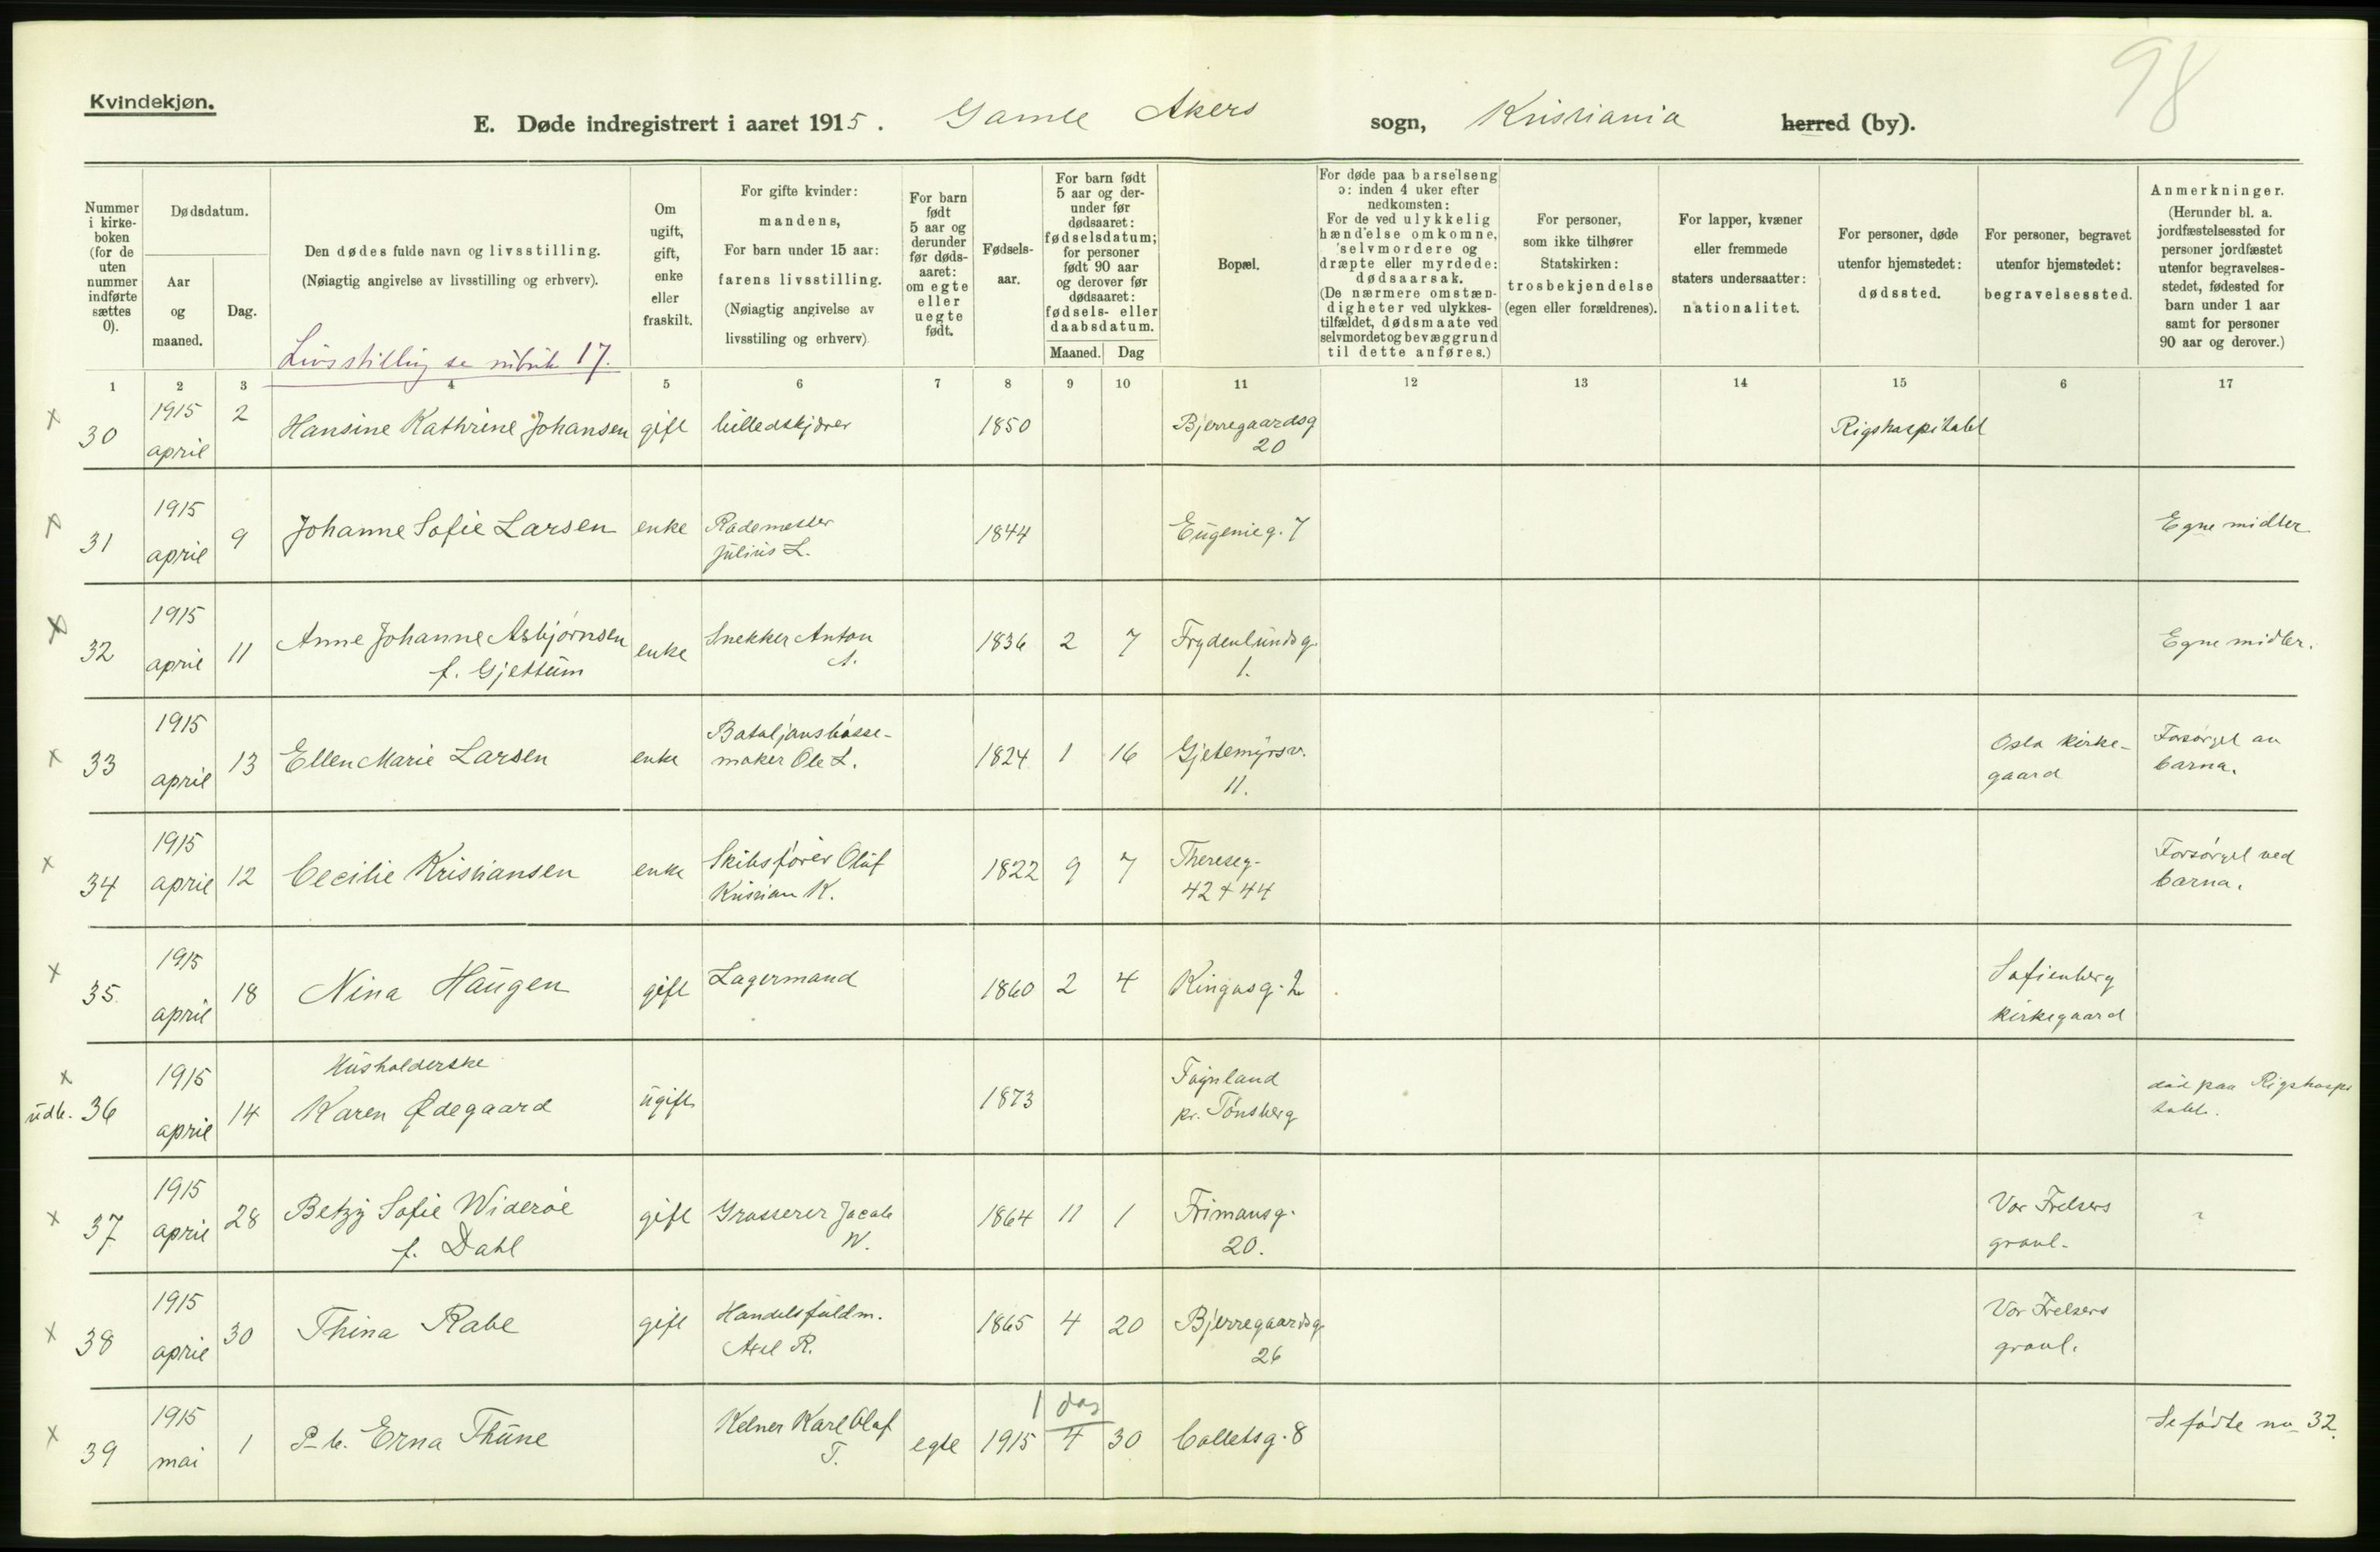 98
Kvindekjøn.
E. Døde indregistrert i aaret 1915. Gamle Akers sogn, Kristiania herred (by).
Nummer i kirkeboken (for de uten nummer indførte sættes 0).
Dødsdatum.
Aar og maaned.
Dag.
Den dødes fulde navn og livsstilling.
(Nøiagtig angivelse av livsstilling og erhverv).
Livsstilling se rubrik 17.
Om ugift, gift, enke eller fraskilt.
For gifte kvinder: mandens,
For barn under 15 aar: farens livsstilling.
(Nøiagtig angivelse av livsstiling og erhverv)
For barn født 5 aar og derunder før dødsaaret: om egte eller uegte født.
Fødselsaar.
For barn født 5 aar og derunder før dødsaaret: fødselsdatum; for personer født 90 aar og derover før dødsaaret: fødsels- eller daabsdatum.
Maaned. Dag
Bopæl.
For døde paa barselseng ɔ: inden 4 uker efter nedkomsten:
For de ved ulykkelig hændelse omkomne, selvmordere og dræpte eller myrdede: dødsaarsak.
(De nærmere omstændigheter ved ulykkestilfældet, dødsmaate ved selvmordet og bevæggrund til dette anføres.)
For personer, som ikke tilhører Statskirken: trosbekjendelse (egen eller forældrenes).
For lapper, kvæner eller fremmede staters undersaatter: nationalitet.
For personer, døde utenfor hjemstedet: dødssted.
For personer, begravet utenfor hjemstedet: begravelsessted.
Anmerkninger.
(Herunder bl. a. jordfæstelsessted for personer jordfæstet utenfor begravelsesstedet, fødested for barn under 1 aar samt for personer 90 aar og derover.)
1 2 3 4 5 6 7 8 9 10 11 12 13 14 15 6 17
x 30 1915 april 2 Hansine Kathrine Johansen gift billedskjærer 1850 Bjerregaardsg 20 Rigshospitalet
x 31 1915 april 9 Johanne Sofie Larsen enke Rodemester Julius L. 1844 Eugenieg. 7 Egne midler
x 32 1915 april 11 Anne Johanne Asbjørnsen f. Gjettum enke Snekker Anton A. 1836 2 7 Frydenlundsg. 1. Egne midler.
x 33 1915 april 13 Ellen Marie Larsen enke Bataljonsbøssemaker Ole L. 1824 1 16 Gjetemyrsv. 11. Oslo kirkegaard Forsørget av barna.
x 34 1915 april 12 Cecilie Kristiansen enke Skibsfører Oluf Kristian K. 1822 9 7 Thereseg. 42 + 44 Forsørget ved barna.
x 35 1915 april 18 Nina Haugen gift Lagermand 1860 2 4 Kingosg. 2 Sofienberg kirkegaard
x udb. 36 1915 april 14 Husholderske Karen Ødegaard ugift 1873 Føynland pr. Tønsberg død paa Rigshospitalet.
x 37 1915 april 28 Betzy Sofie Widerøe f. Dahl gift Grosserer Jacob W. 1864 11 1 Frimansg. 20. Vor Frelsers gravl.
x 38 1915 april 30 Thina Rabe gift Handelsfuldm. Axel R. 1865 4 20 Bjerregaardsg 26 Vor Frelsers gravl.
x 39 1915 mai 1 Erna Thune Kelner Karl Olaf T. egte 1915 1 dag 4 30 Colletsg. 8 Se fødte no 32.